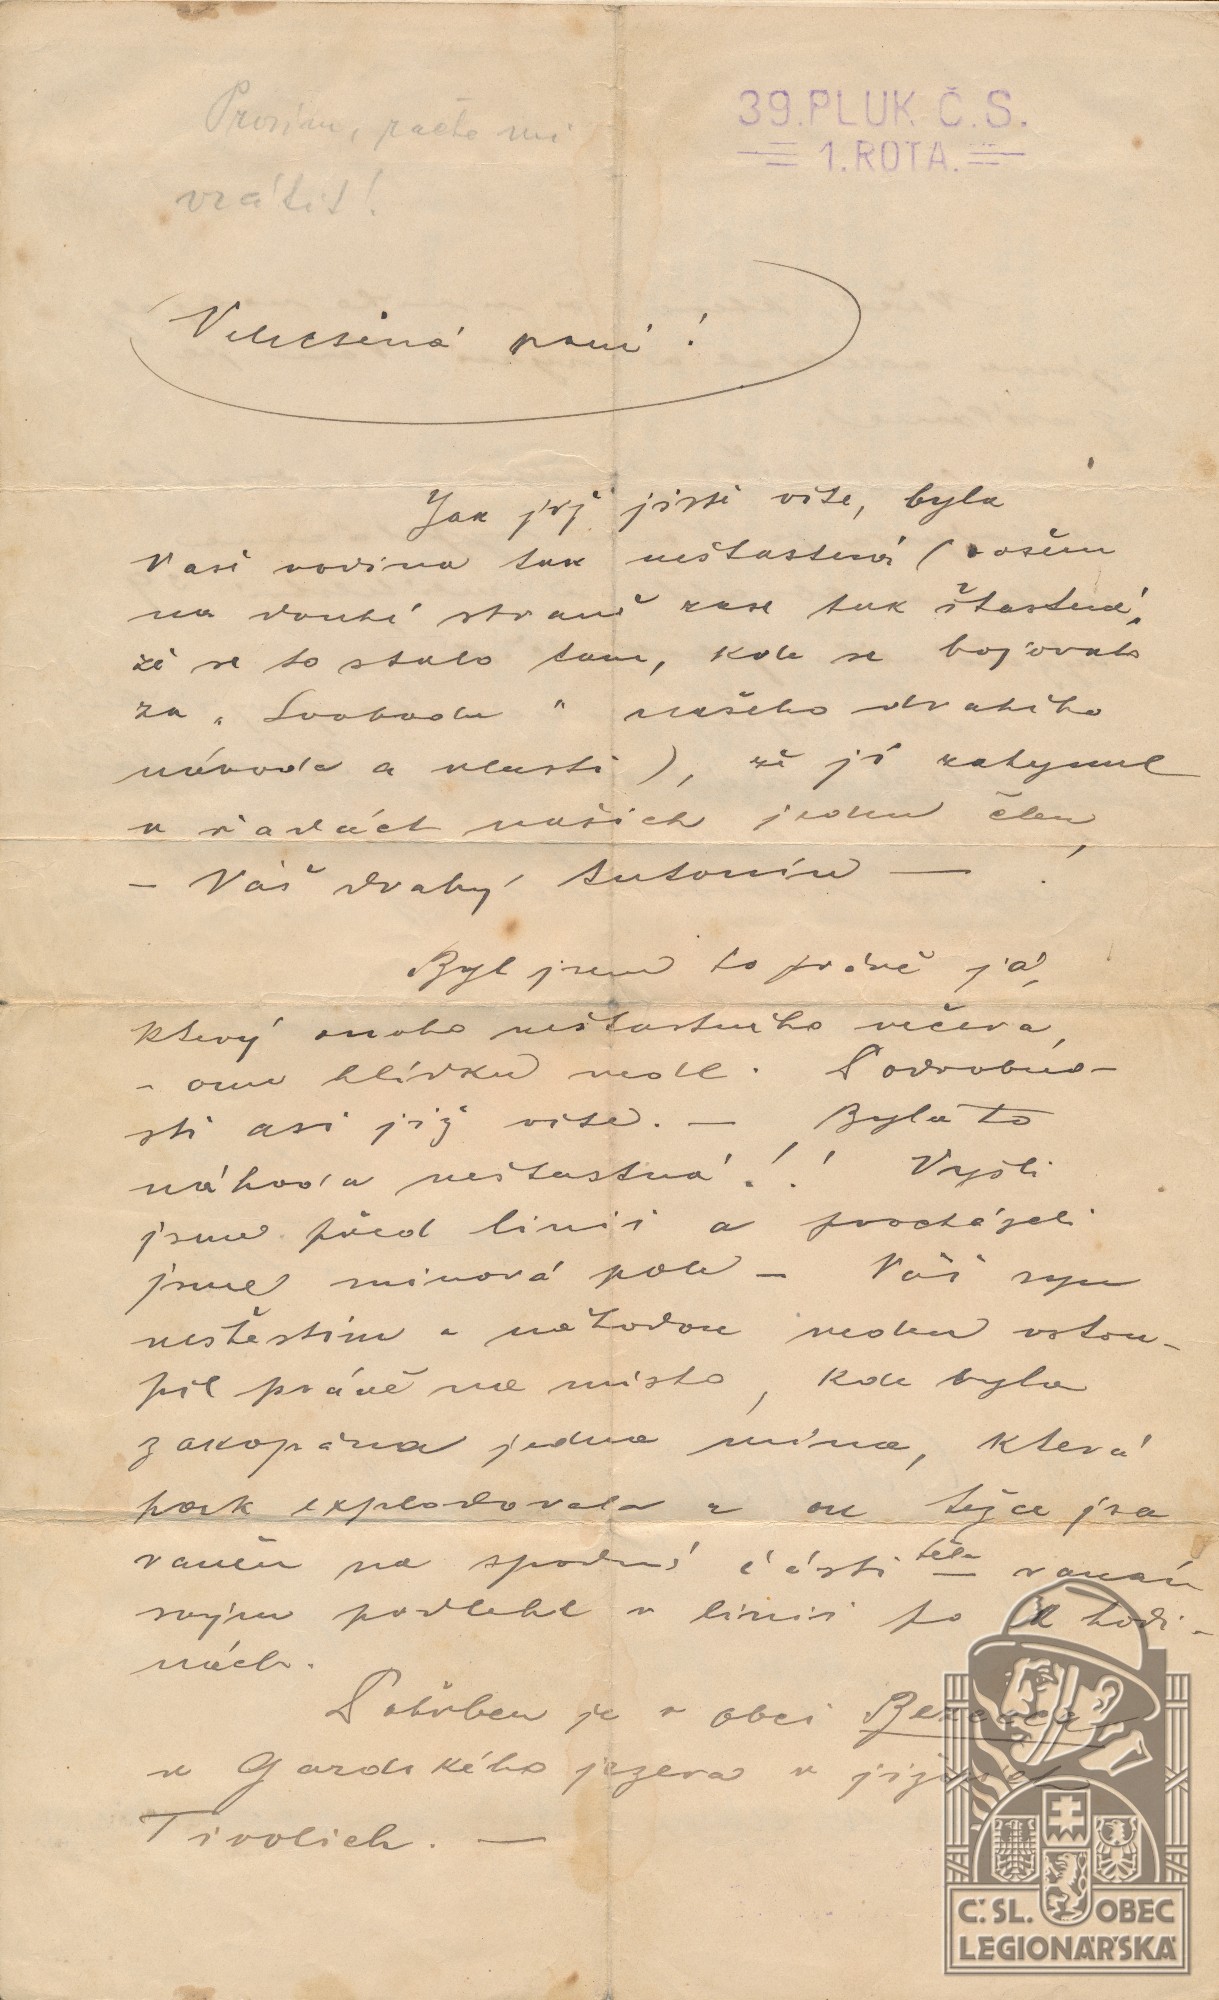 Prosím, račte mi
vrátit!
39. PLUK Č.S.
1. ROTA.
Velectěná paní!
Jak již jistě víte, byla
Vaší rodina tak nešťastná (ovšem
na druhé straně zase tak šťastná,
že se to stalo tam, kde se bojovalo
za „Svobodu“ našeho drahého
národa a vlasti), že jí zahynul
v řadách našich jeden člen,
– Váš drahý Antonín –!
Byl jsem to právě já,
který onoho nešťastného večera,
– onu hlídku vedl. Podrobno-
sti asi již víte. – Byla to
náhoda nešťastná!! Vyšli
jsme před linii a procházeli
jsme minová pole – Váš syn
neštěstím a náhodou vstou-
pil právě na místo, kde byla
zakopána jedna mina, která
pak explodovala a on těžce jsa
raněn na spodní části těla – ranám
svým podlehl v linii po hodi-
nách.
Pohřben je v obci Bezecca
u Gardského jezera v jižních
Tirolích. –
Č.SL. OBEC
LEGIONÁŘSKÁ